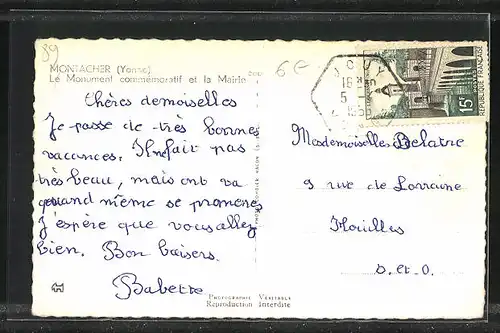 89
MONTACHER (Yonne)
Le Monument commémoratif et la Mairie
6€
Chères demoiselles
Je passe de très bonnes
vacances. Il ne fait pas
très beau, mais on va
quand même se promener
J'espère que vous allez
bien. Bon baisers.
Babette
PHOTOGRAPHIE VÉRITABLE
Reproduction Interdite
JOUY
16 H
5
15F
REPUBLIQUE FRANÇAISE
Mademoiselles Delatre
9 rue de Lorraine
Houilles
S. et. O.